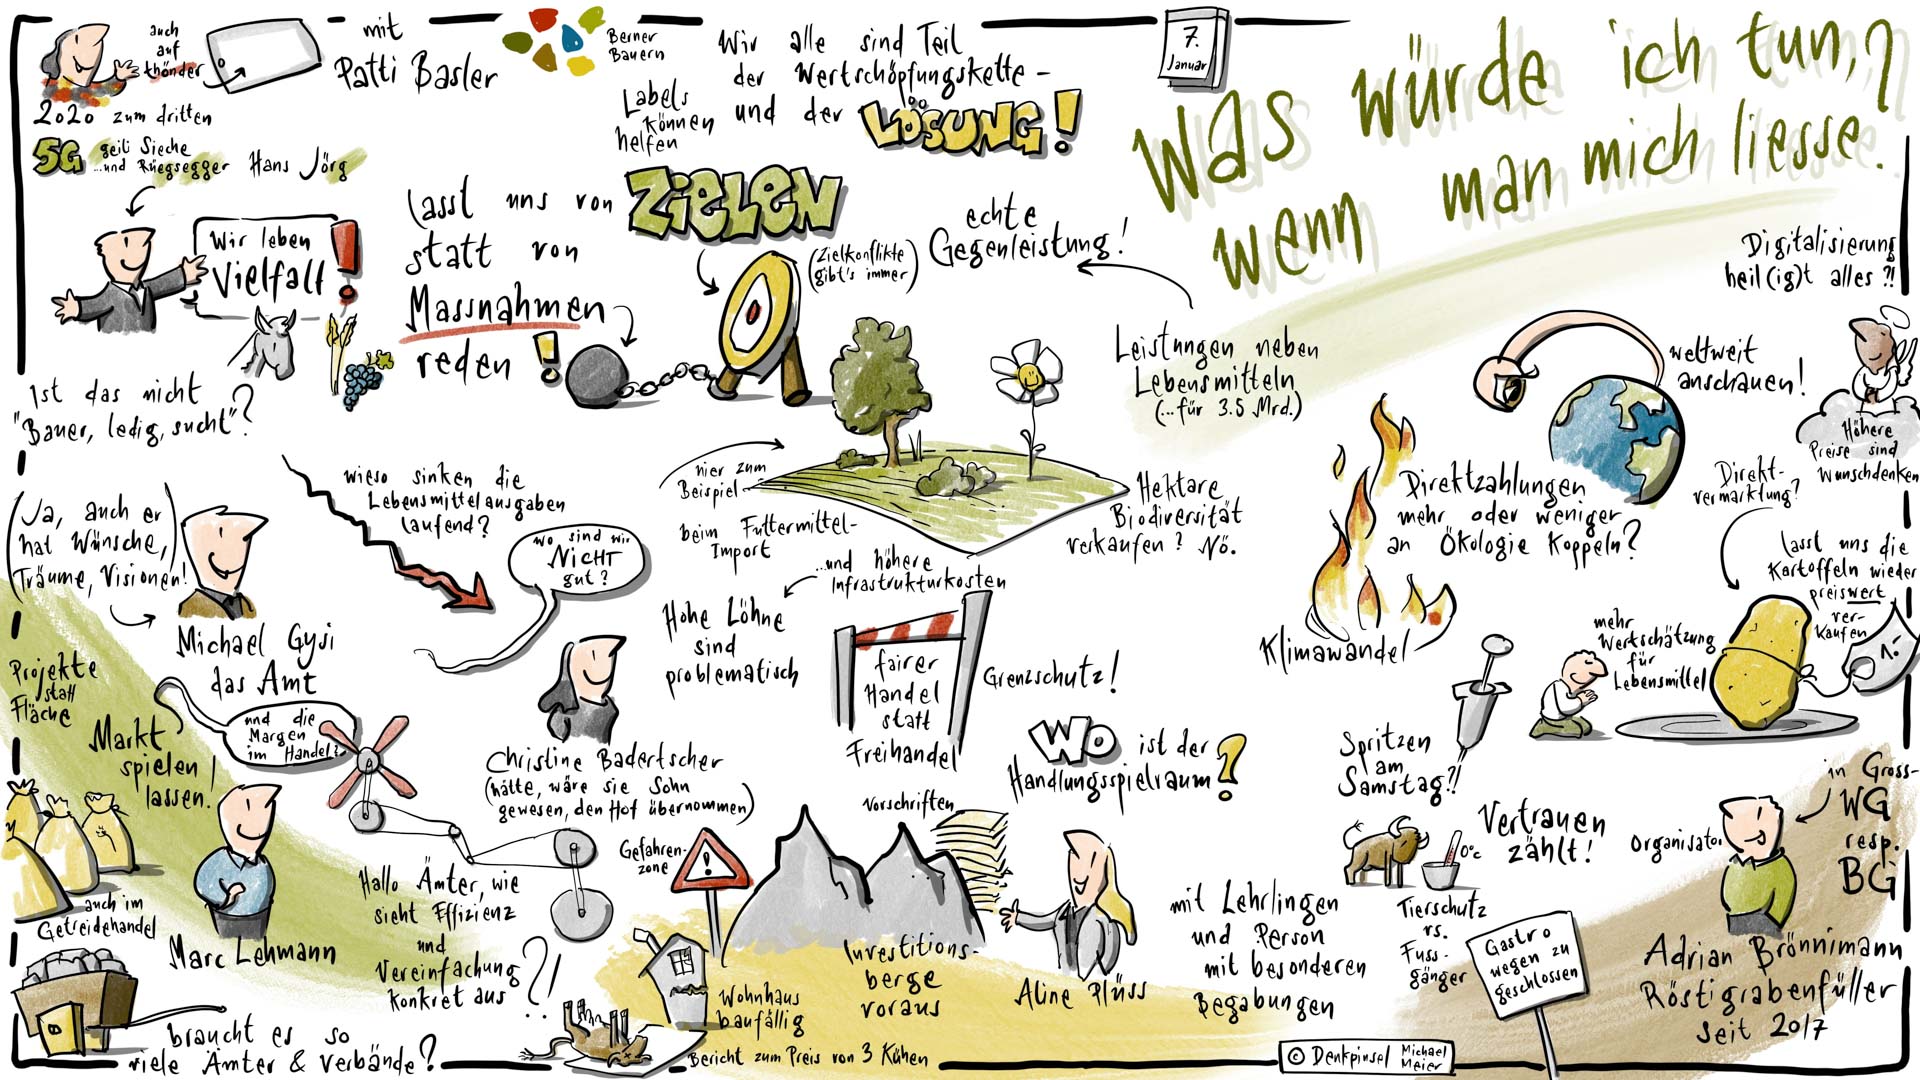 auch
auf
thönder
mit
Patti Basler
2020 zum dritten
5G
geili Sieche
...und Rüegsegger Hans Jörg
Berner
Bauern
Wir alle sind Teil
der Wertschöpfungskette -
und der
LÖSUNG!
Labels
können
helfen
7.
Januar
Was würde ich tun,
wenn man mich liesse.?
Wir leben
Vielfalt!
Ist das nicht
"Bauer, ledig, sucht"?
lasst uns von
ZIELEN
statt von
Massnahmen
reden!
(Zielkonflikte
gibt's immer)
echte
Gegenleistung!
Leistungen neben
Lebensmitteln
(...für 3.5 Mrd.)
Digitalisierung
heil(ig)t alles?!
weltweit
anschauen!
Höhere
Preise sind
Wunschdenken
(Ja, auch er
hat Wünsche,
Träume, Visionen!)
Michael Gysi
das Amt
wieso sinken die
Lebensmittelausgaben
laufend?
wo sind wir
NICHT
gut?
hier zum
Beispiel
beim Futtermittel-
Import
Hektare
Biodiversität
verkaufen? Nö.
...und höhere
Infrastrukturkosten
Hohe Löhne
sind
problematisch
fairer
Handel
statt
Freihandel
Grenzschutz!
Klimawandel
Direktzahlungen
mehr oder weniger
an Ökologie koppeln?
Direkt-
vermarktung?
lasst uns die
Kartoffeln wieder
preiswert
ver-
kaufen
1.-
mehr
Wertschätzung
für
Lebensmittel
Projekte
statt
Fläche
Markt
spielen
lassen!
und die
Margen
im Handel?
Christine Badertscher
(hätte, wäre sie Sohn
gewesen, den Hof übernommen)
WO ist der
Handlungsspielraum?
Spritzen
am
Samstag?!
Vertrauen
zählt!
0°C
Tierschutz
vs.
Fuss-
gänger
Organisator
in Gross-
WG
resp.
BG
Adrian Brönnimann
Röstigrabenfüller
seit 2017
auch im
Getreidehandel
Marc Lehmann
Hallo Ämter, wie
sieht Effizienz
und
Vereinfachung
konkret aus?!
Gefahren-
zone
!
Vorschriften
Investitions-
berge
voraus
Aline Plüss
mit Lehrlingen
und Person
mit besonderen
Begabungen
Gastro
wegen zu
geschlossen
braucht es so
viele Ämter & Verbände?
Wohnhaus
baufällig
Bericht zum Preis von 3 Kühen
© Denkpinsel Michael
Meier